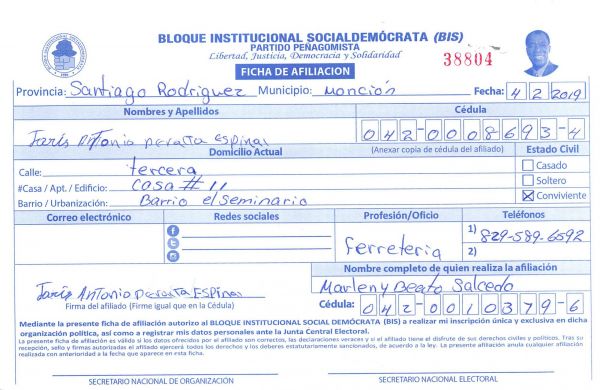 BLOQUE INSTITUCIONAL SOCIALDEMÓCRATA (BIS)
PARTIDO PEÑAGOMISTA
Libertad, Justicia, Democracia y Solidaridad
38804
FICHA DE AFILIACION
Provincia: Santiago Rodriguez Municipio: Monción Fecha: 4/2/2019
Nombres y Apellidos Cédula
Jaris Antonio peralta Espinal 042-0008693-4
Domicilio Actual (Anexar copia de cédula del afiliado) Estado Civil
Calle: tercera Casado
#Casa / Apt. / Edificio: Casa # 11 Soltero
Barrio / Urbanización: Barrio el Seminario Conviviente
Correo electrónico Redes sociales Profesión/Oficio Teléfonos
Ferreteria 1) 829-589-6592
2)
Nombre completo de quien realiza la afiliación
Marleny Beato Salcedo
Jaris Antonio peralta Espinal
Firma del afiliado (Firme igual que en la Cédula) Cédula: 042-0010379-6
Mediante la presente ficha de afiliación autorizo al BLOQUE INSTITUCIONAL SOCIAL DEMÓCRATA (BIS) a realizar mi inscripción única y exclusiva en dicha
organización política, así como a registrar mis datos personales ante la Junta Central Electoral.
La presente ficha de afiliación es válida si los datos ofrecidos por el afiliado son correctos, las declaraciones veraces y si el afiliado tiene el disfrute de sus derechos civiles y políticos. Tras su
recepción, sello y firmas autorizadas el afiliado ejercerá todos los derechos y los deberes estatutariamente sancionados, de acuerdo a la ley. La presente afiliación anula cualquier afiliación
realizada con anterioridad a la fecha que aparece en esta ficha.
SECRETARIO NACIONAL DE ORGANIZACIÓN SECRETARIO NACIONAL ELECTORAL